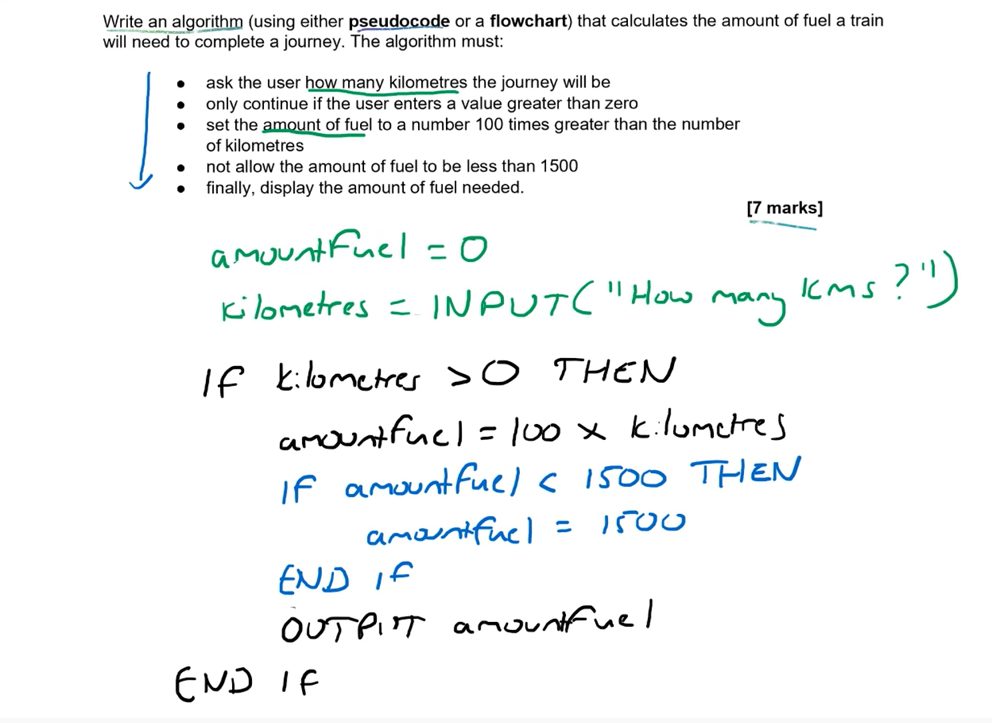 Write an algorithm (using either pseudocode or a flowchart) that calculates the amount of fuel a train
will need to complete a journey. The algorithm must:
• ask the user how many kilometres the journey will be
• only continue if the user enters a value greater than zero
• set the amount of fuel to a number 100 times greater than the number
of kilometres
• not allow the amount of fuel to be less than 1500
• finally, display the amount of fuel needed.
[7 marks]
amountfuel = 0
kilometres = INPUT("How many kms?")
IF kilometres > 0 THEN
amountfuel = 100 x kilometres
IF amountfuel < 1500 THEN
amountfuel = 1500
END IF
OUTPUT amountfuel
END IF